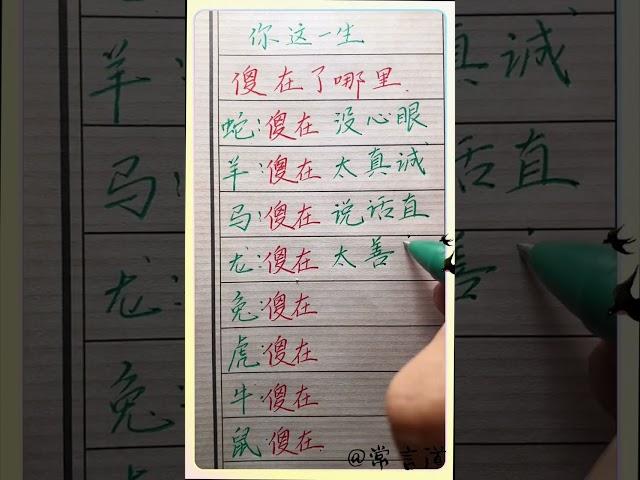 你这一生
傻在了哪里.
蛇:傻在 没心眼
羊:傻在 太真诚
马:傻在 说话直
龙:傻在 太善
兔:傻在
虎:傻在
牛:傻在
鼠:傻在
@常言道